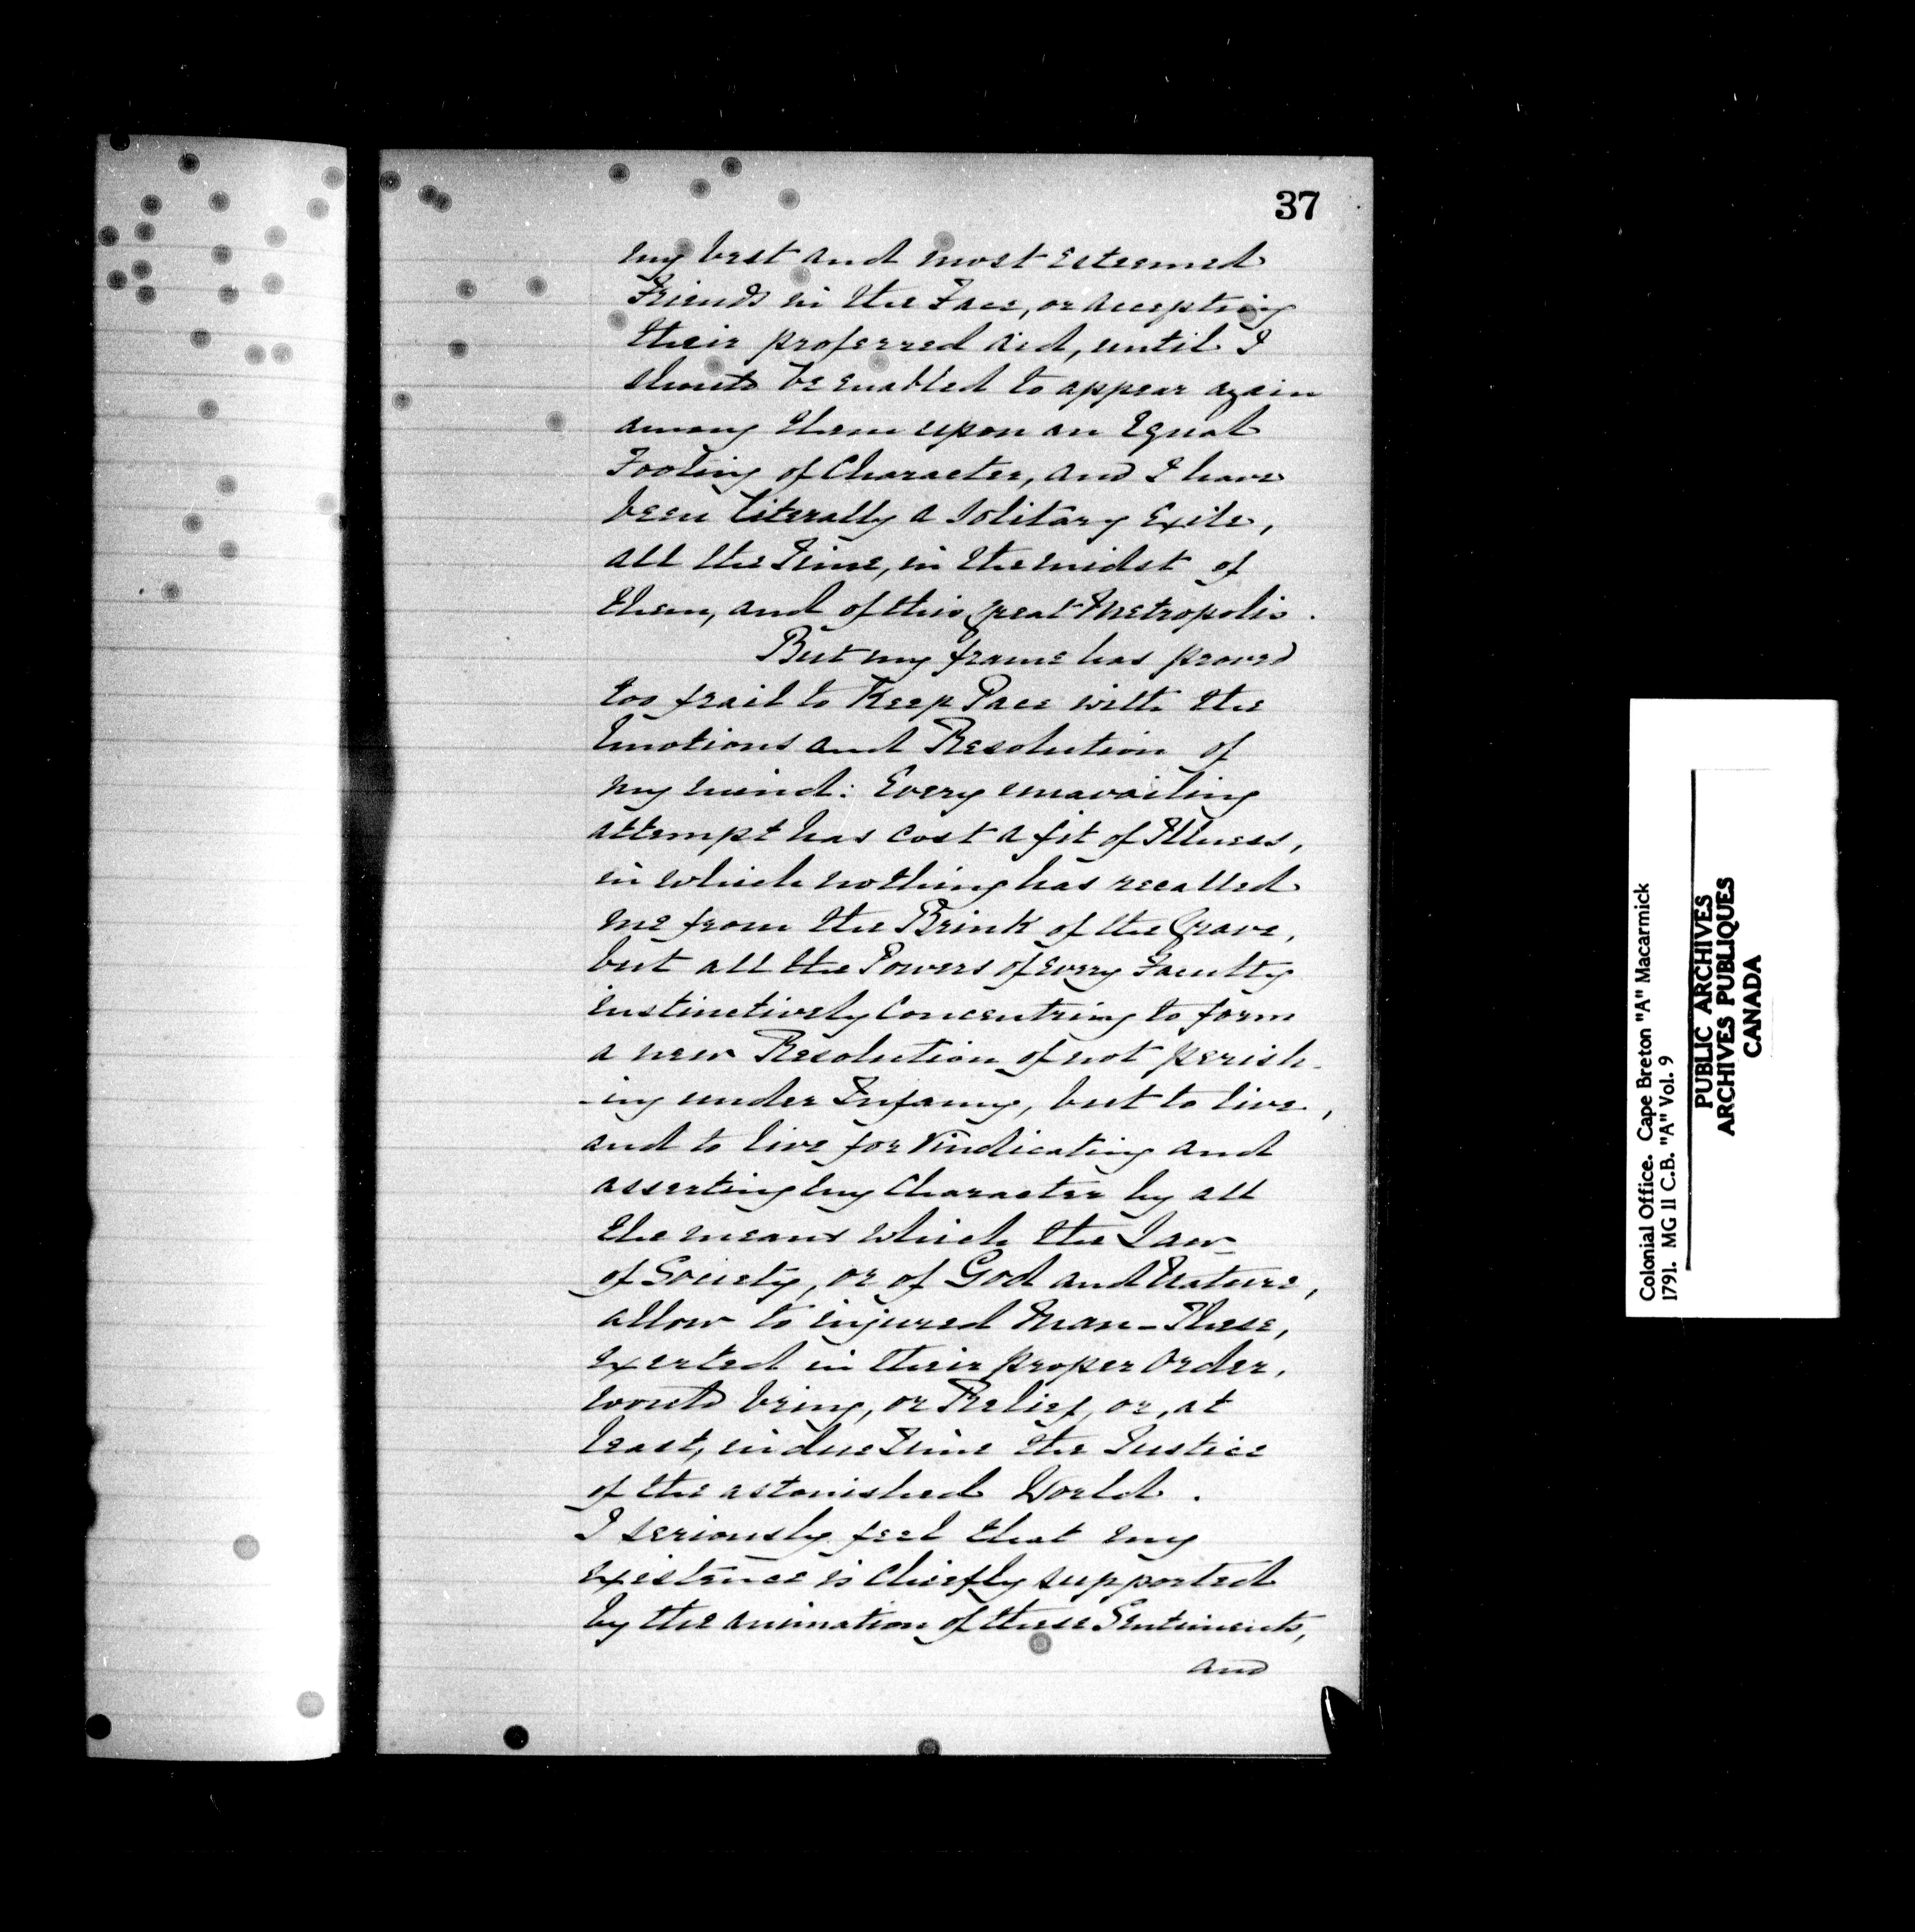 37
my best and most esteemed
Friends in the Face, or accepting
their proferred aid, until I
should be enabled to appear again
among them upon an Equal
Footing of Character, and I have
been literally a Solitary Exile,
all the Time, in the midst of
them, and of this great Metropolis.
But my frame has proved
too frail to Keep Pace with the
Emotions and Resolution of
my mind: Every unavailing
attempt has cost a fit of Illness,
in which nothing has recalled
me from the Brink of the Grave,
but all the Powers of every Faculty
instinctively Concentring to form
a new Resolution of not perish-
-ing under Infamy, but to live,
and to live for Vindicating and
asserting my Character by all
the means which the Law
of Society, or of God and Nature,
allow to injured Man - These,
exerted in their proper Order,
would bring, or Relief, or, at
least, in due Time the Justice
of the astonished World.
I seriously feel that my
existence is chiefly supported
by the animation of these Sentiments,
and
Colonial Office. Cape Breton "A" Macarmick
1791. MG 11 C.B. "A" Vol. 9
PUBLIC ARCHIVES
ARCHIVES PUBLIQUES
CANADA